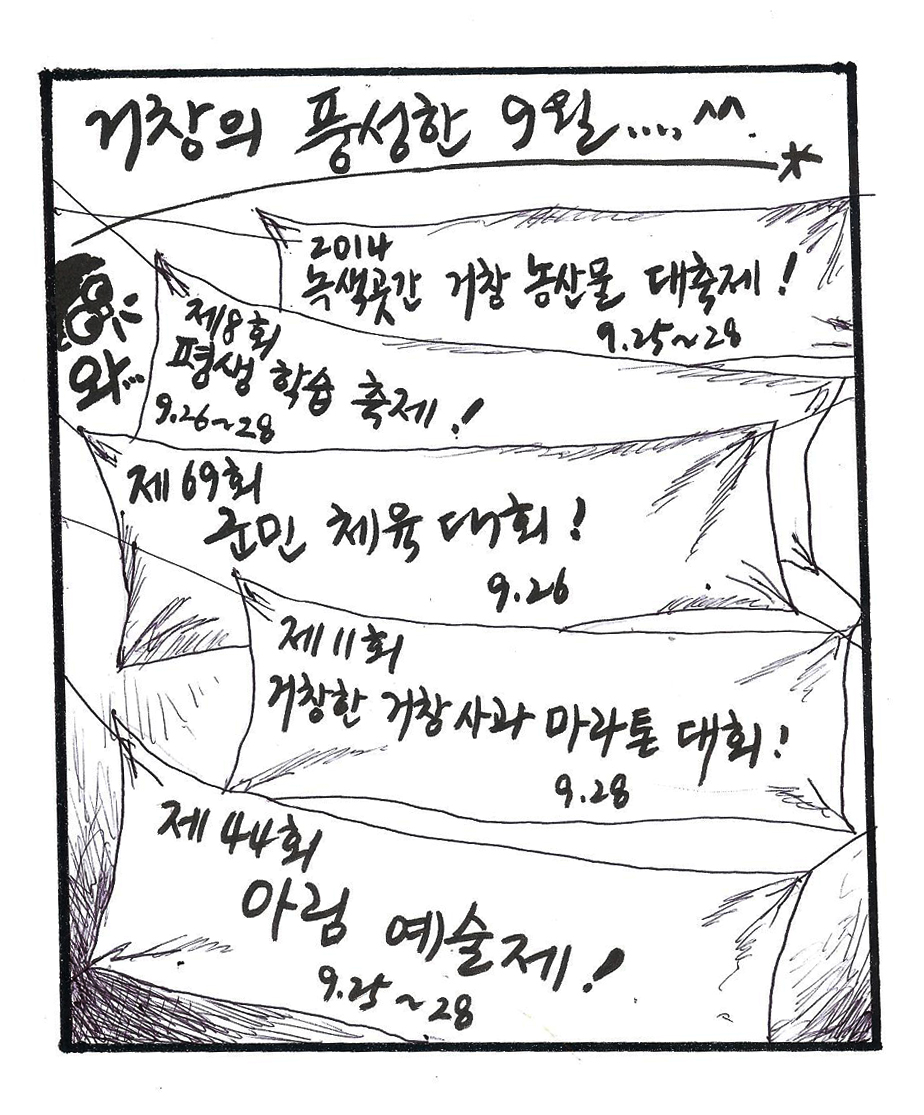 거창의 풍성한 9월.... ^^.
2014
녹색곳간 거창 농산물 대축제!
9.25~28
와...
제8회
평생 학습 축제!
9.26~28
제69회
군민 체육대회!
9.26
제11회
거창한 거창사과 마라톤 대회!
9.28
제44회
아림 예술제!
9.25~28